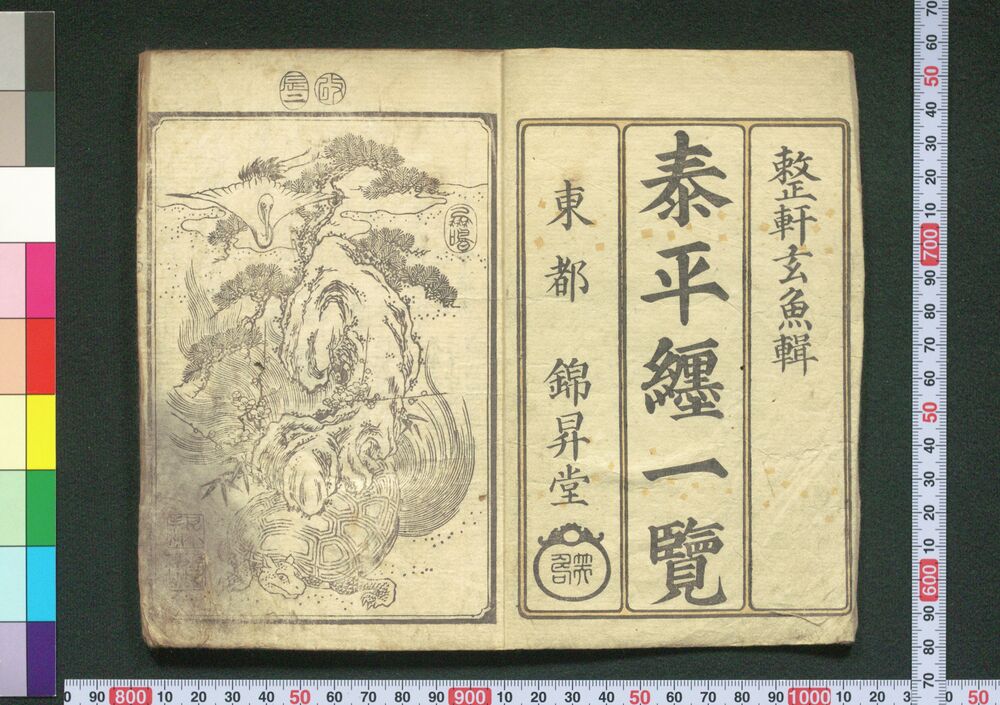 整軒玄魚輯
泰平纒一覧
東都 錦昇堂
改
70
60
50
40
30
20
10
700
90
80
70
60
50
40
30
20
10
600
90
80
70
0 90 800 10 20 30 40 50 60 70 80 90 900 10 20 30 40 50 60 70 80 90 1000 10 20 3 50